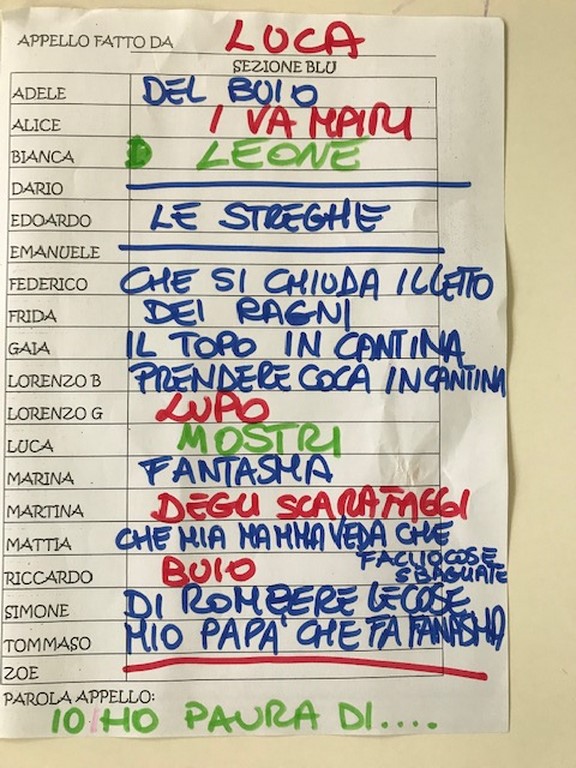 APPELLO FATTO DA LUCA
SEZIONE BLU
ADELE DEL BUIO
ALICE I VAMPIRI
BIANCA D LEONE
DARIO
EDOARDO LE STREGHE
EMANUELE
FEDERICO CHE SI CHIUDA IL LETTO
FRIDA DEI RAGNI
GAIA IL TOPO IN CANTINA
LORENZO B PRENDERE COCA IN CANTINA
LORENZO G LUPO
LUCA MOSTRI
MARINA FANTASMA
MARTINA DEGLI SCARAFAGGI
MATTIA CHE MIA MAMMA VEDA CHE
FACCIO COSE
SBAGLIATE
RICCARDO BUIO
SIMONE DI ROMPERE LE COSE
TOMMASO MIO PAPA' CHE FA FANTASMA
ZOE
PAROLA APPELLO:
IO HO PAURA DI....